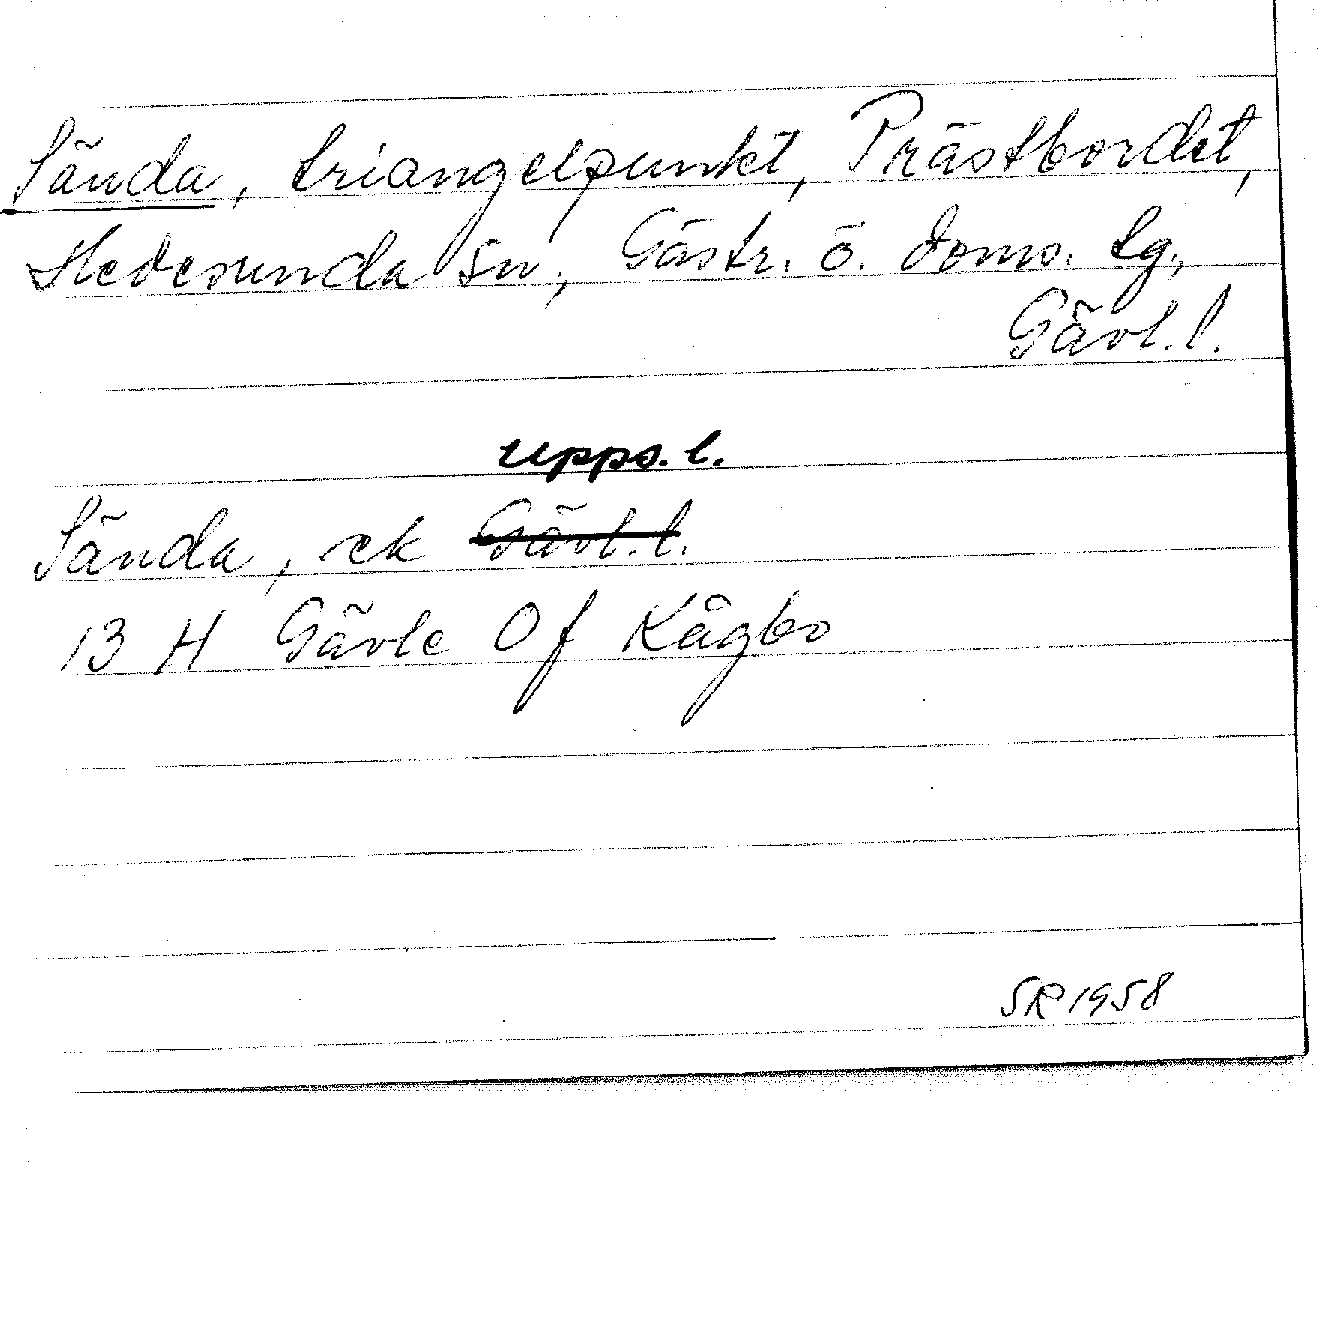 Sända, triangelpunkt, Prästbordet,
Hedesunda sn, Gästr. ö. doms. lg.,
Gävl. l.
Upps. l.
Sända, rek Gävl. l.
13 H Gävle 0 f Kågbo
SR 1958